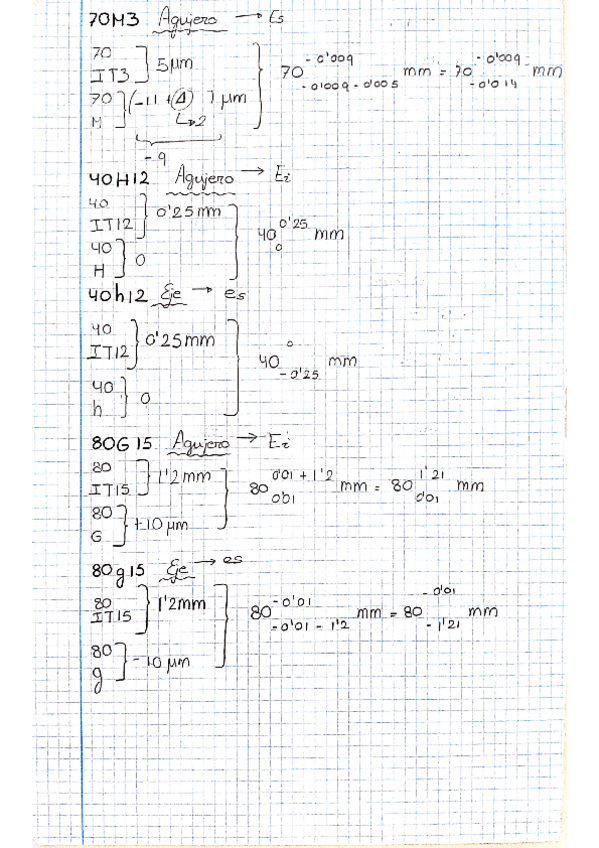 70M3 Agujero → Es
70
IT3 } 5 μm
70
M } (-11 + Δ) μm
↳ 2
-9
70 -0'009 -0'009-0'005 mm = 70 -0'009 -0'014 mm
40H12 Agujero → Ei
40
IT12 } 0'25 mm
40
H } 0
40 0'25 0 mm
40h12 Eje → es
40
IT12 } 0'25 mm
40
h } 0
40 0 -0'25 mm
80G15 Agujero → Ei
80
IT15 } 1'2 mm
80
G } +10 μm
80 0'01 + 1'2 0'01 mm = 80 1'21 0'01 mm
80g15 Eje → es
80
IT15 } 1'2 mm
80
g } -10 μm
80 -0'01 -0'01 - 1'2 mm = 80 -0'01 -1'21 mm